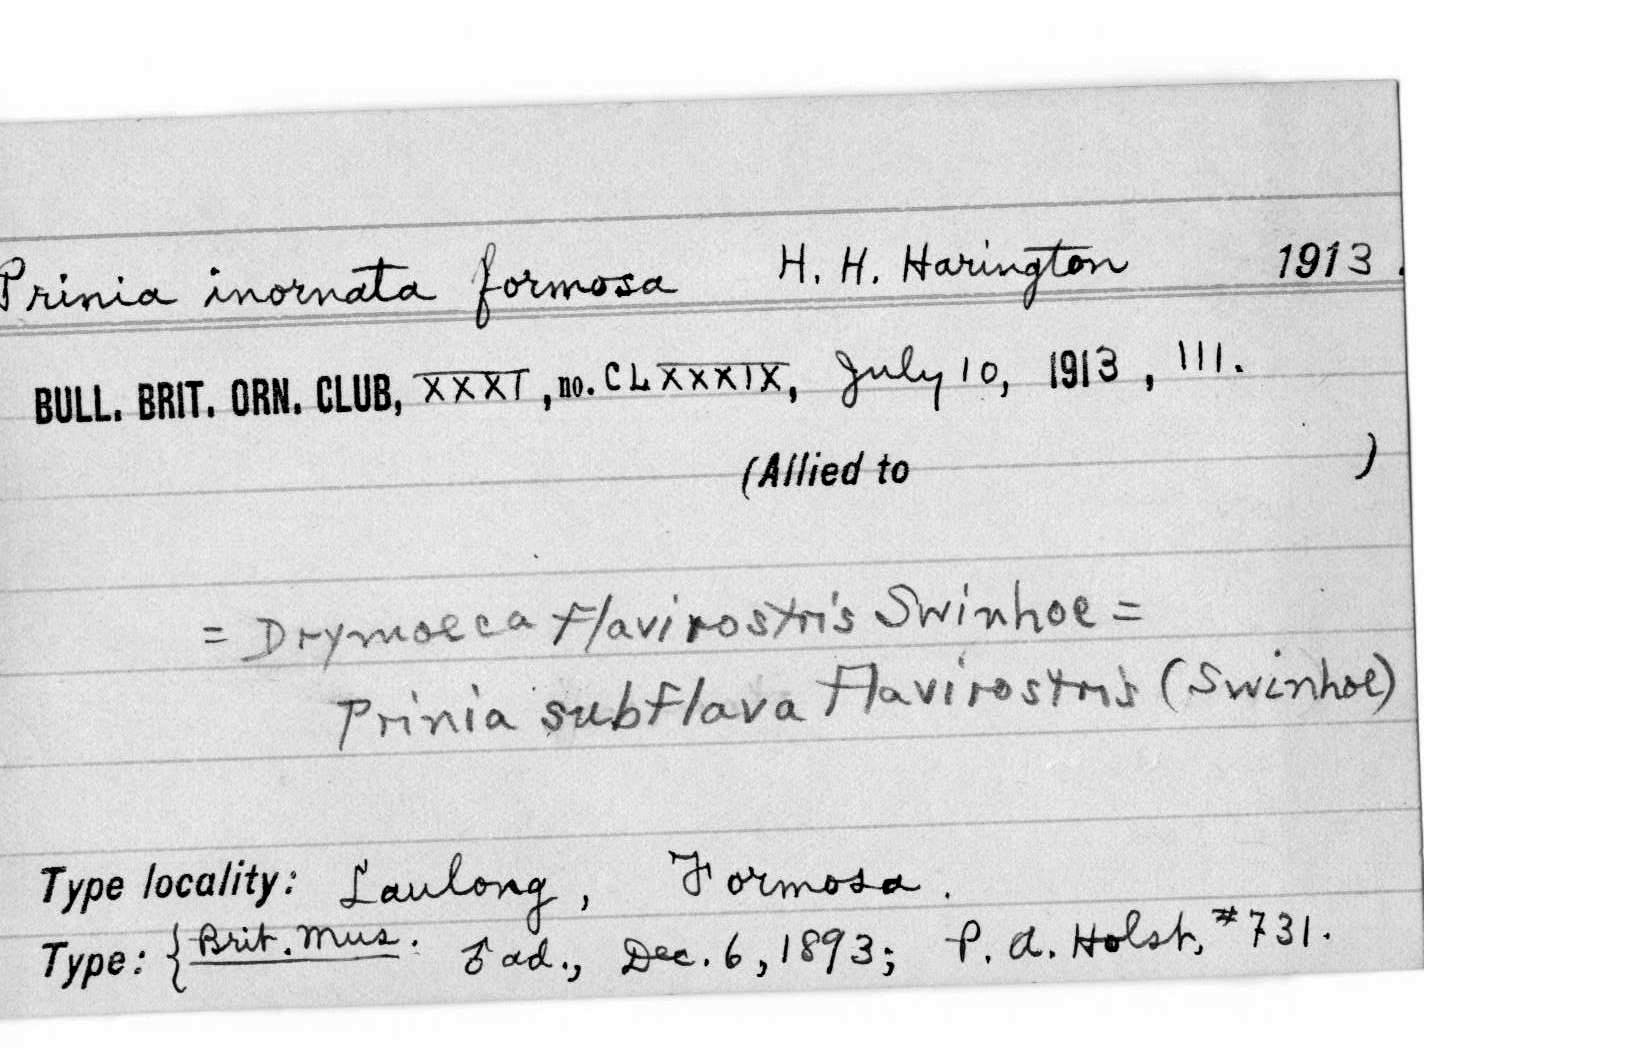 Prinia inornata formosa H. H. Harington 1913.
BULL. BRIT. ORN. CLUB, XXXI, no. CLXXXIX, July 10, 1913, 111.
(Allied to )
= Drymoeca flavirostris Swinhoe =
Prinia subflava flavirostris (Swinhoe)
Type locality: Laulong, Formosa.
Type: { Brit. Mus. ♂ ad., Dec. 6, 1893; P. A. Holst, #731.